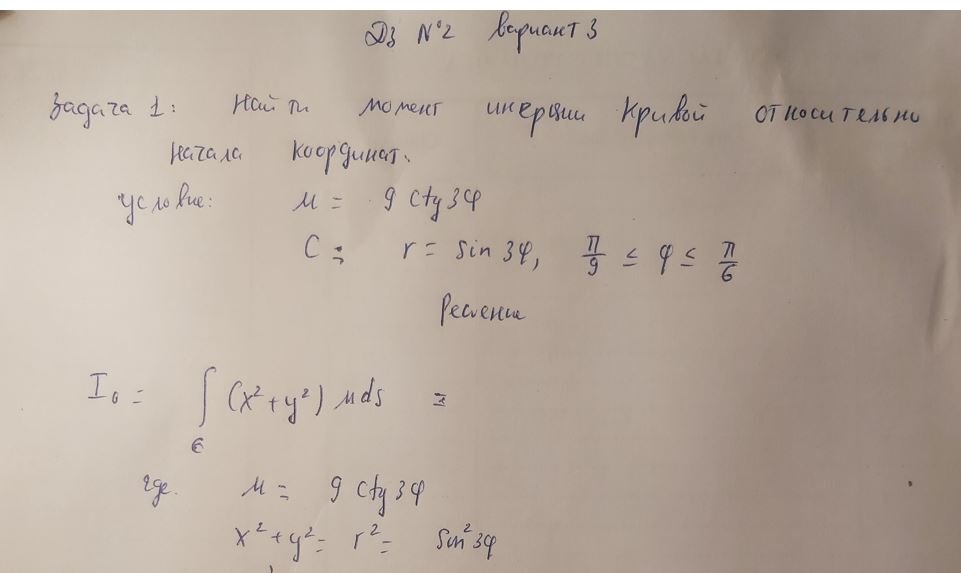 ДЗ №2 вариант 3
Задача 1: Найти момент инерции кривой относительно
начала координат.
условие: μ = 9 ctg 3φ
C: r = sin 3φ, π/9 ≤ φ ≤ π/6
Решение
I₀ = ∫_C (x² + y²) μ ds =
где. μ = 9 ctg 3φ
x² + y² = r² = sin² 3φ